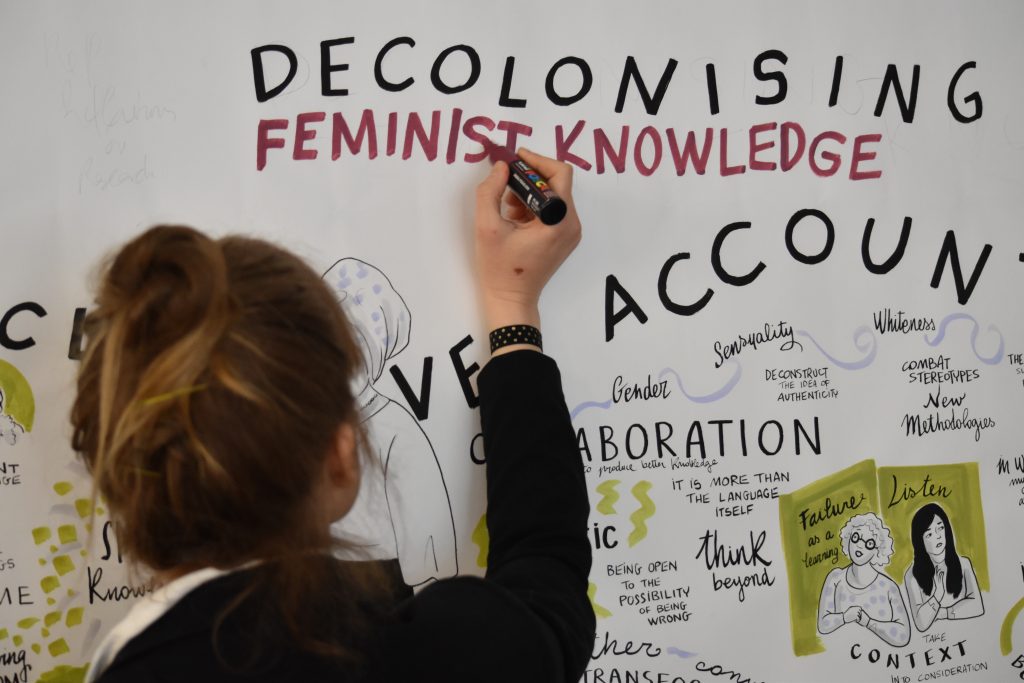 DECOLONISING
FEMINIST KNOWLEDGE
ACCOUN
VE
Sensuality
Whiteness
Gender
DECONSTRUCT
THE IDEA OF
AUTHENTICITY
COMBAT
STEREOTYPES
New
Methodologies
ABORATION
to produce better knowledge
IT IS MORE THAN
THE LANGUAGE
ITSELF
think
beyond
BEING OPEN
TO THE
POSSIBILITY
OF BEING
WRONG
Failure
as a
learning
Listen
TAKE
CONTEXT
INTO CONSIDERATION
Know
TRANSFO